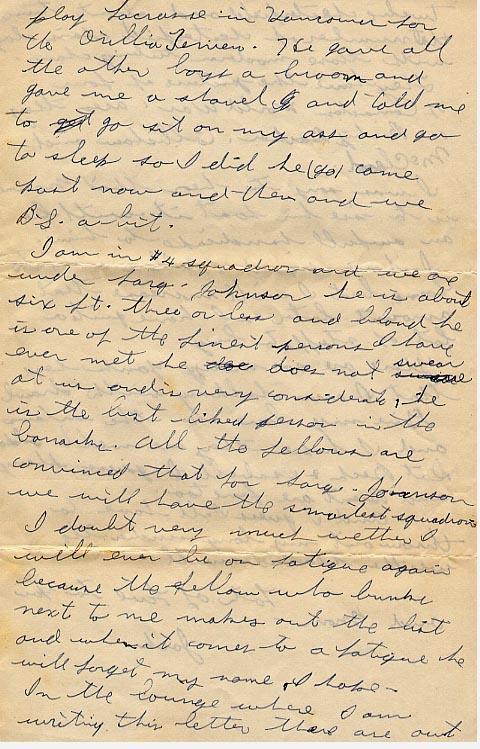 play lacrosse in Vancouver for
the Orillia Terriers. He gave all
the other boys a broom and
gave me a shovel & and told me
to get go sit on my ass and go
to sleep so I did he (go) come
past now and then and we
B.S. a bit.
I am in #4 squadron and we are
under Sarg. Johnson he is about
six ft. three or less and blond he
is one of the finest persons I have
ever met he doe does not swear
at us and is very considerate, he
is the best liked person in the
barracks. All the fellows are
convinced that for Sarg. Johanson
we will have the smartest squadron
I doubt very much wether I
will ever be on fatigue again
because the fellow who bunks
next to me makes out the list
and when it comes to a fatigue he
will forget my name, I hope-
In the lounge where I am
writing this letter there are out